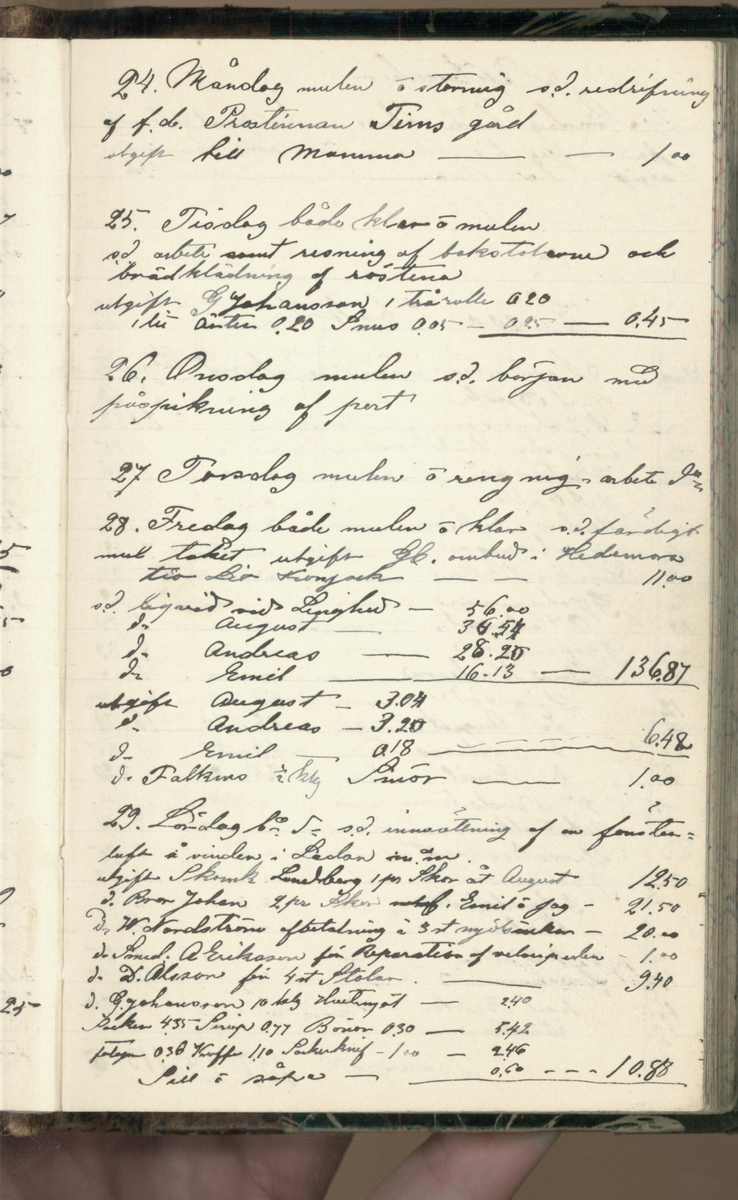 24. Måndag mulen ö stormig s.d. redrifning
af f.d. Prostinnan Tirns gård
utgift till Mamma — — 1 00
25. Tisdag både klar ö mulen
s.d. arbete samt resning af takstolarne och
brädklädning af röstena
utgift G Johansson 1 trårolle 0 20
1 lit 0.20 Snus 0.05 — 0.25 — 0.45
26. Onsdag mulen s.d. början med
påspikning af pert
27 Torsdag mulen ö rengnig. arbete
28. Fredag både mulen ö klar s.d. färdigt
med taket utgift ombud i Hedemora
Konjack — — 11.00
s.d. liqvid vid Linghed — 56.00
d. August —
d. Andreas — 28.20
d. Emil — 16.13 — 136.87
utgift August — 3.04
d. Andreas — 3.20
d. Emil 0.18 — 6.42
d. Falkens ½ klg Smör — 1.00
29. Lördag s.d. innsättning af en fönster=
luft å vinden i Ladan m.m.
utgift Skomk Lundberg 1 pr Skor åt August 12.50
d. Bror Johan 2 pr Skor Emil ö jag — 21.50
D. W. Nordström afbetalning å 3 st mjölsäckar — 20.00
d. Smed. A Eriksson för Reparation af velocipeden — 1.00
d. D. Olsson för 4 st Stolar. — 9.40
d. G Johansson 10 klg — 2.40
4.35 Sirup 0.77 Bönor 0.30 — 5.42
0.36 Kaffe 1.10 — 1.00 — 2.46
Sill ö såpa — 0.60 - - - 10.88